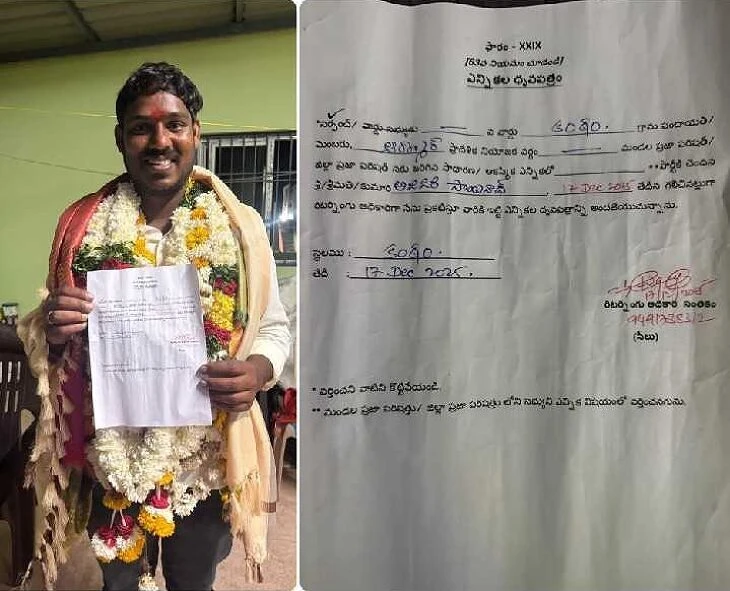 ఫారం - XXIX
ఎన్నికల ధృవపత్రం
*సర్పంచ్/ వార్డు సభ్యుడు — వ వార్డు కంగ్టి. గ్రామ పంచాయతి/
మెంబరు, ప్రాదేశిక నియోజక వర్గం — మండల ప్రజా పరిషత్/
జిల్లా ప్రజా పరిషత్ నకు జరిగిన సాధారణ/ ఆకస్మిక ఎన్నికలో **పార్టీకి చెందిన
శ్రీ/శ్రీమతి/కుమారి సాయినాథ్, 17 Dec 2025 తేదిన గెలిచినట్లుగా
రిటర్నింగు అధికారిగా నేను ప్రకటిస్తూ వారికి ఇట్టి ఎన్నికల ధృవపత్రాన్ని అందజేయుచున్నాను.
స్థలము : కంగ్టి.
తేది : 17 Dec 2025.
రిటర్నింగు అధికారి సంతకం
(సీలు)
* వర్తించని వాటిని కొట్టివేయండి
** మండల ప్రజా పరిషత్తు/ జిల్లా ప్రజా పరిషత్తు లోని సభ్యుని ఎన్నిక విషయంలో వర్తించనగును.